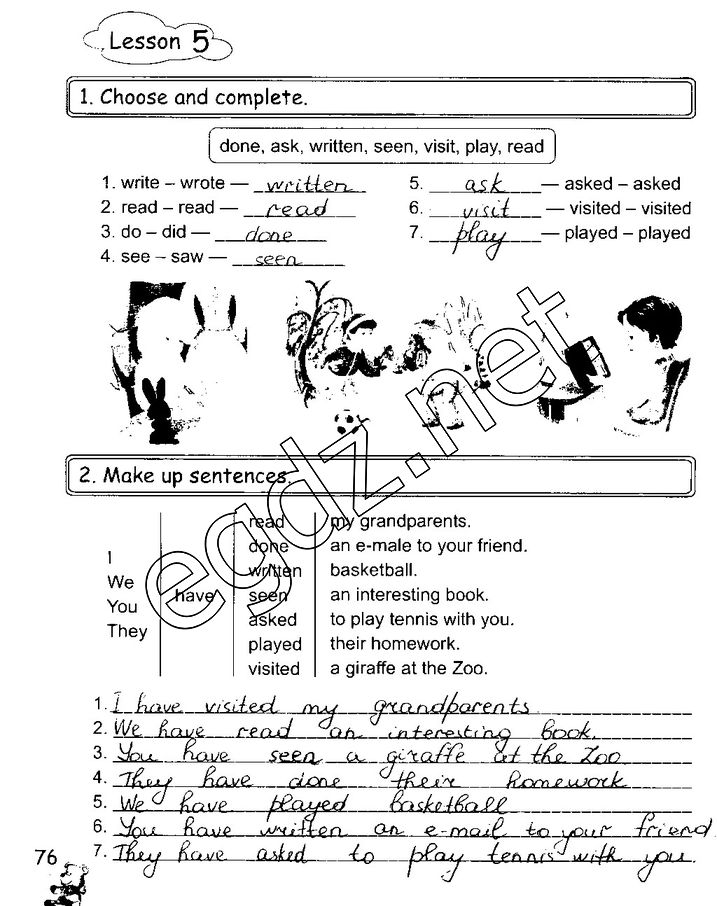 Lesson 5
1. Choose and complete.
done, ask, written, seen, visit, play, read
1. write – wrote — written
2. read – read — read
3. do – did — done
4. see – saw — seen
5. ask — asked – asked
6. visit — visited – visited
7. play — played – played
egdz.net
2. Make up sentences.
I
We
You
They
have
read
done
written
seen
asked
played
visited
my grandparents.
an e-male to your friend.
basketball.
an interesting book.
to play tennis with you.
their homework.
a giraffe at the Zoo.
1. I have visited my grandparents
2. We have read an interesting book.
3. You have seen a giraffe at the Zoo
4. They have done their homework
5. We have played basketball
6. You have written an e-mail to your friend
7. They have asked to play tennis with you.
76